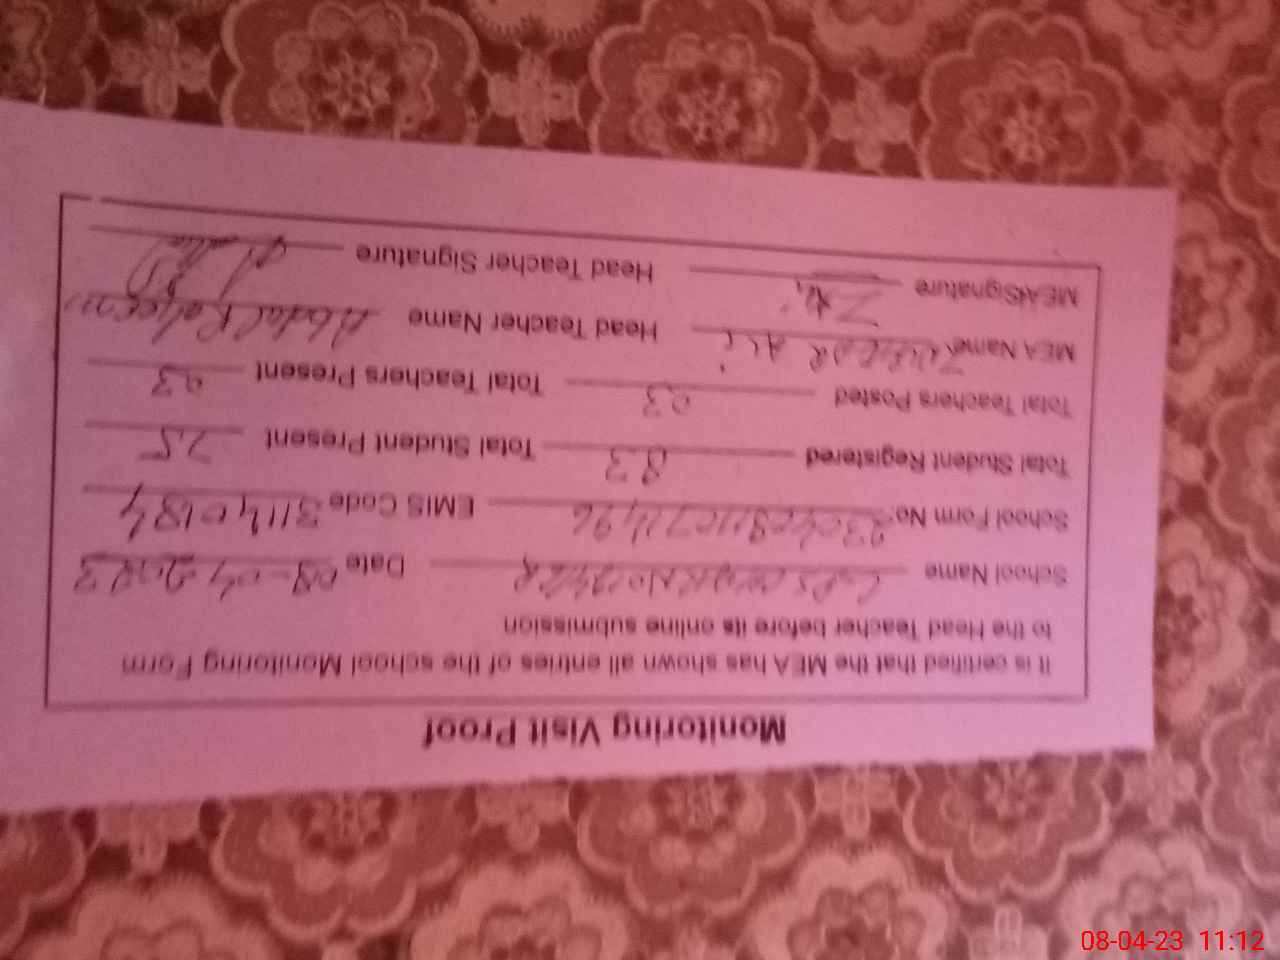 Monitoring Visit Proof
It is certified that the MEA has shown all entries of the school Monitoring Form
to the Head Teacher before its online submission
School Name Date 08-04-2023
School Form No. EMIS Code 31140184
Total Student Registered 83 Total Student Present 75
Total Teachers Posted 03 Total Teachers Present 03
MEA Name Ali Head Teacher Name Abdal Raheem
MEA Signature Head Teacher Signature
08-04-23 11:12